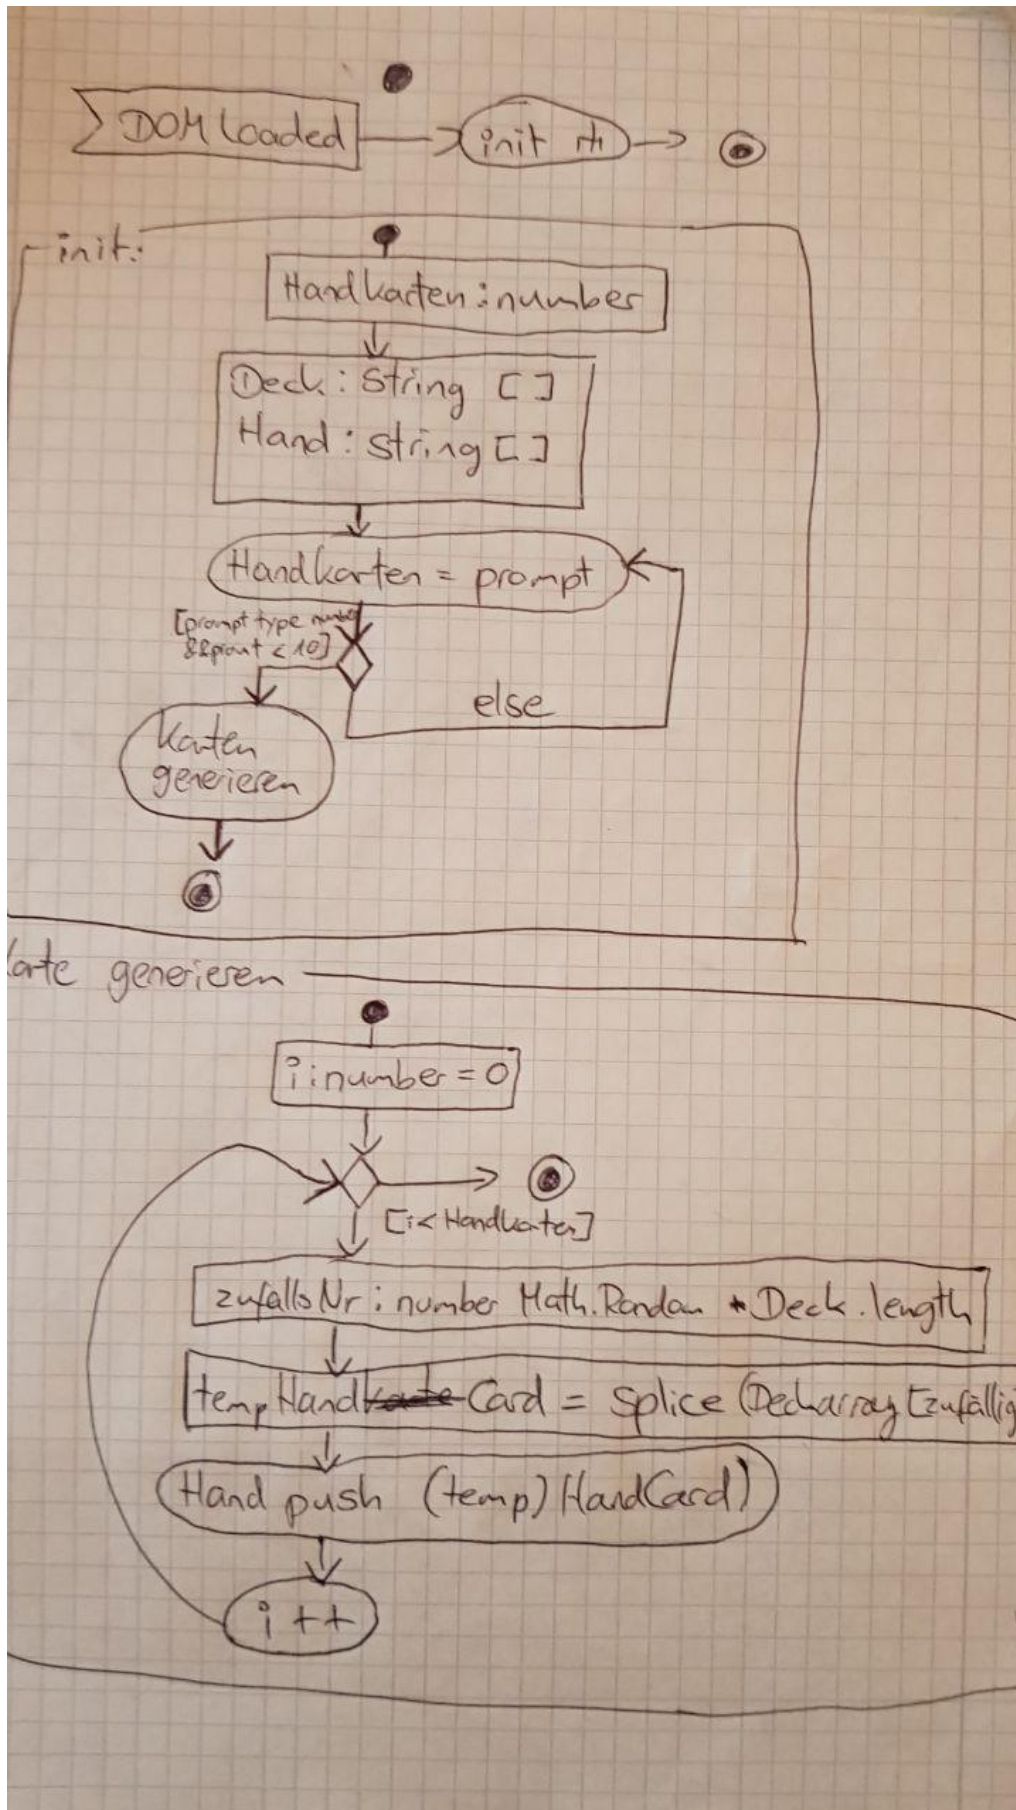 DOM loaded
init
init:
Handkarten : number
Deck : String []
Hand : String []
Handkarten = prompt
[prompt type number
&& < 10]
else
Karten
generieren
generieren
i : number = 0
[i < Handkarten]
zufallsNr : number Math.Random * Deck.length
tempHand Card = splice (Deckarray [zufällig
Hand push (temp) HandCard)
i ++